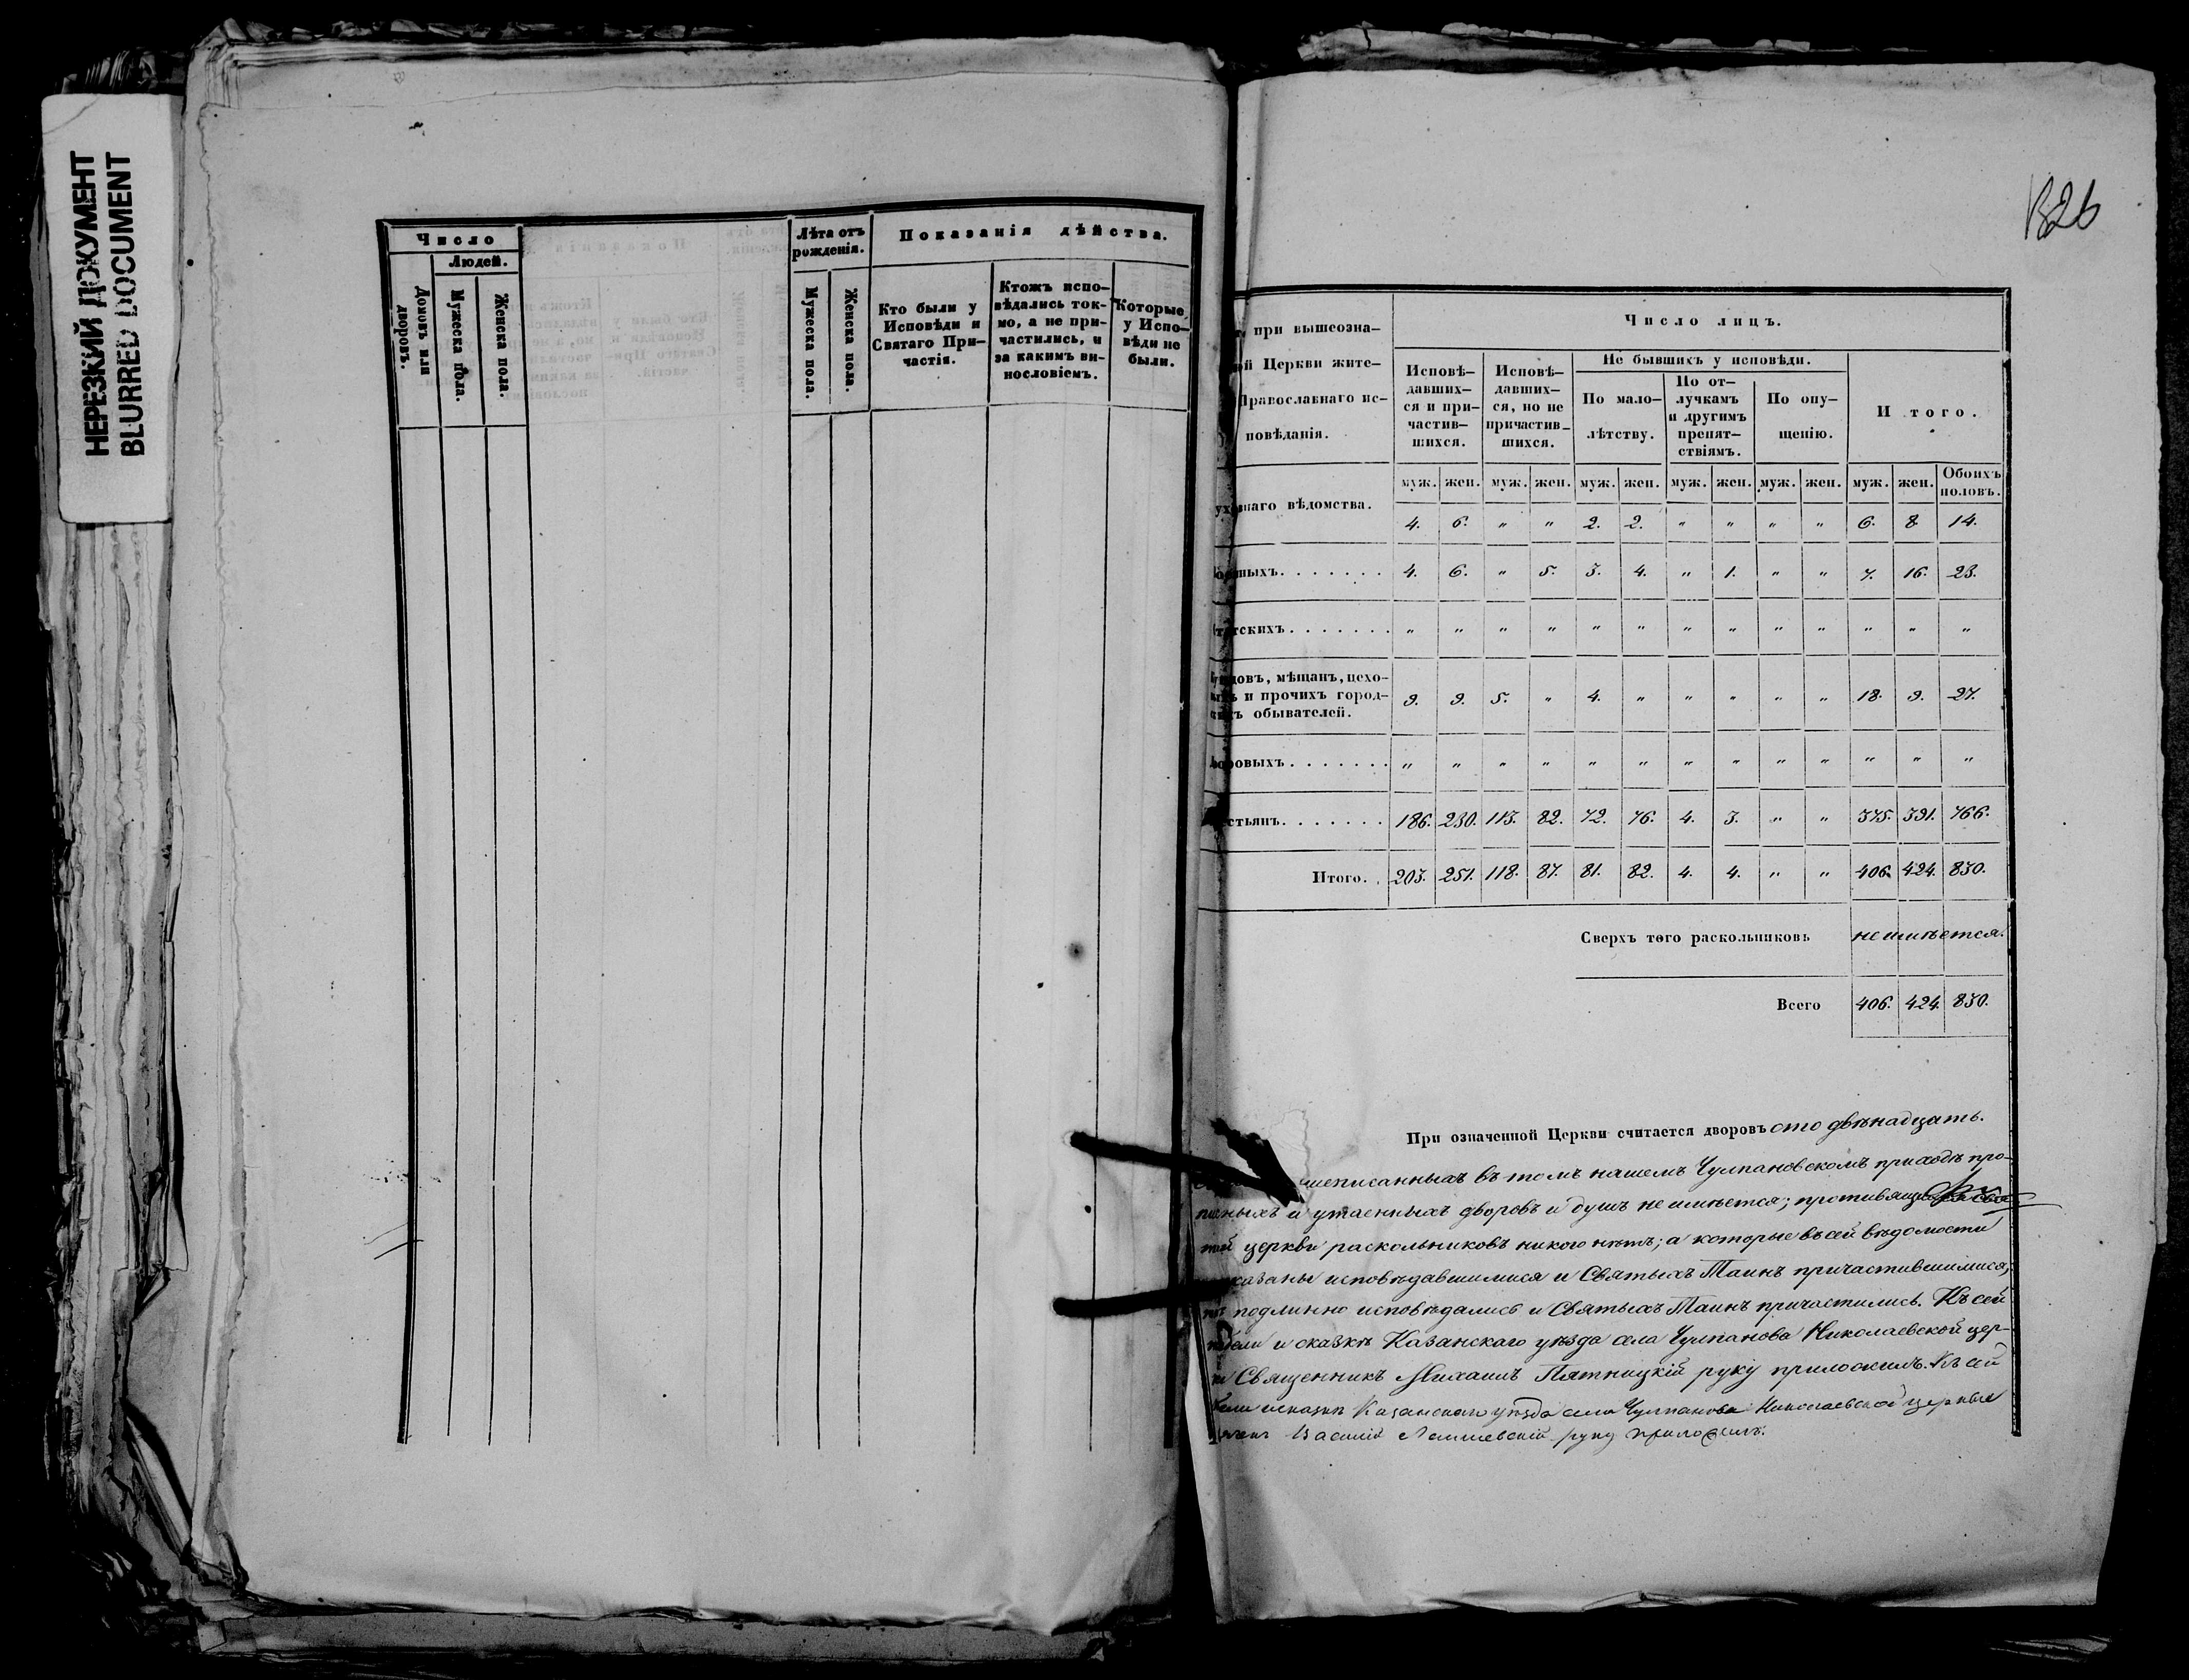 НЕРЕЗКИЙ ДОКУМЕНТ
BLURRED DOCUMENT
Число
Людей.
Домовъ или дворовъ.
Мужеска пола.
Женска пола.
Лѣта отъ рожденія.
Мужеска пола.
Женска пола.
Показанія дѣйства.
Кто были у
Исповѣди и
Святаго При-
частія.
Ктожъ испо-
вѣдались ток-
мо, а не при-
частились, и
за какимъ ви-
нословіемъ.
Которые
у Испо-
вѣди не
были.
при вышеозна-
й Церкви жите-
Православнаго ис-
повѣданія.
Число лицъ.
Исповѣ-
давших-
ся и при-
частив-
шихся.
Исповѣ-
давших-
ся, но не
причастив-
шихся.
Не бывшихъ у исповѣди.
По мало-
лѣтству.
По от-
лучкамъ
и другимъ
препят-
ствіямъ.
По опу-
щенію.
Итого.
муж. жен. муж. жен. муж. жен. муж. жен. муж. жен. муж. жен. Обоихъ половъ.
наго вѣдомства. 4. 6. " " 2. 2. " " " " 6. 8 14.
ныхъ. . . . . . . 4. 6. " 5. 3. 4. " 1. " " 7. 16. 23.
тскихъ. . . . . . . " " " " " " " " " " " " "
довъ, мѣщан, цехо-
и прочихъ город-
ъ обывателей. 9. 9. 5. " 4. " " " " " 18. 9. 27.
ровыхъ. . . . . . . " " " " " " " " " " " " "
стьянъ. . . . . . . 186. 230. 113. 82. 72. 76. 4. 3. " " 375. 391. 766.
Итого. . 203. 251. 118. 87. 81. 82. 4. 4. " " 406. 424. 830.
Сверхъ того раскольниковъ не имѣется.
Всего 406. 424. 830.
При означенной Церкви считается дворовъ сто двѣнадцать.
шеписанныхъ въ томъ нашемъ Чулпановскомъ приходѣ про-
ныхъ и утаенныхъ дворовъ и душъ не имѣется; противящихся свя-
той церкви раскольниковъ никого нѣтъ; а которые въ сей вѣдомости
казаны исповѣдавшимися и Святыхъ Таинъ причастившимися,
подлинно исповѣдались и Святыхъ Таинъ причастились. Къ сей
и сказкѣ Казанскаго уѣзда села Чулпанова Николаевской цер-
и Священникъ Михаилъ Пятницкій руку приложилъ. Къ сей
и сказкѣ Казанскаго уѣзда села Чулпанова Николаевской церкви
Василій руку приложилъ.